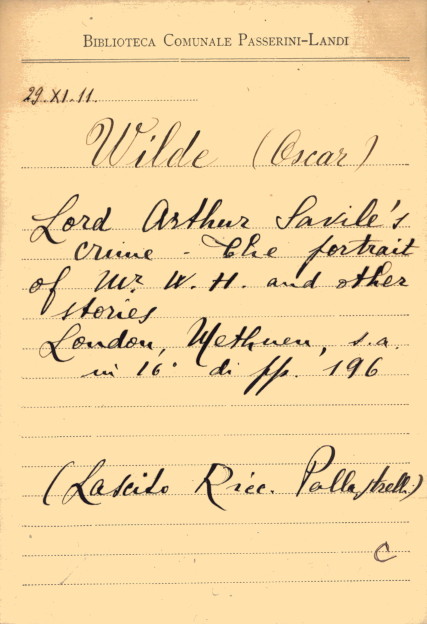 BIBLIOTECA COMUNALE PASSERINI-LANDI
29.XI.11.
Wilde (Oscar)
Lord Arthur Savile's
crime - The portrait
of Mr W. H. and other
stories
London, Methuen, s.a.
in 16° di pp. 196
(Lascito Ricc. Pallastrelli)
C